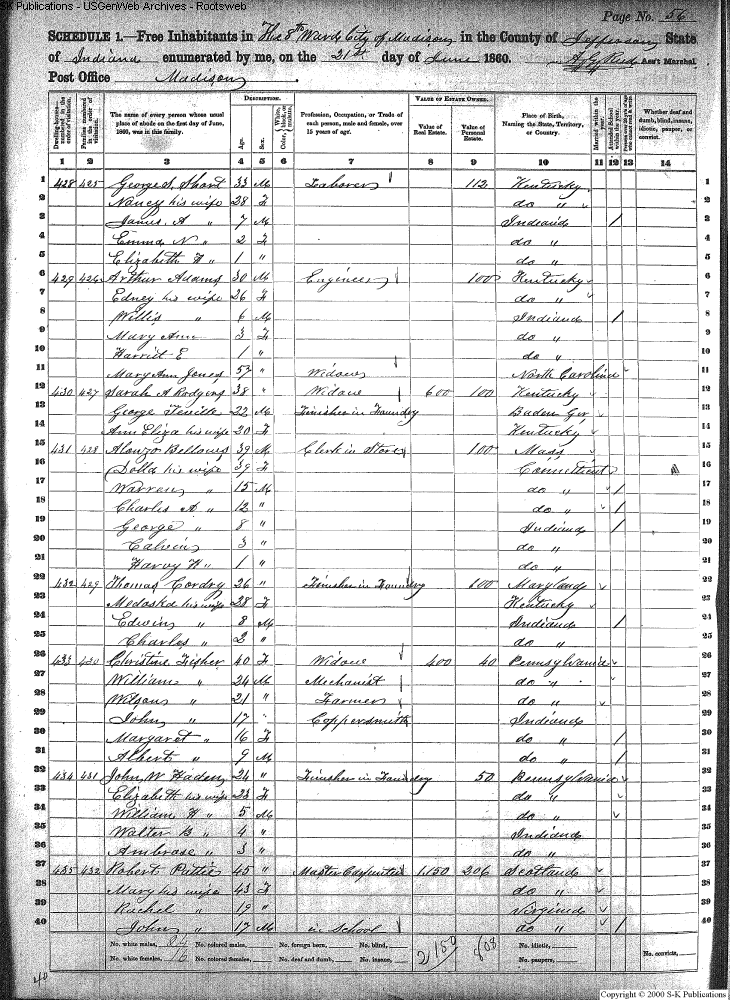 S-K Publications - USGenWeb Archives - Rootsweb
Page No. 56
SCHEDULE 1.—Free Inhabitants in This 8th Ward City of Madison in the County of Jefferson State
of Indiana enumerated by me, on the 21st day of June 1860. Ass't Marshal
Post Office Madison.
DESCRIPTION. VALUE OF ESTATE OWNED.
Dwelling-houses—numbered in the order of visitation. Families numbered in the order of visitation. The name of every person whose usual place of abode on the first day of June, 1860, was in this family. Age. Sex. Color, {White, black, or mulatto. Profession, Occupation, or Trade of each person, male and female, over 15 years of age. Value of Real Estate. Value of Personal Estate. Place of Birth, Naming the State, Territory, or Country. Married within the year. Attended School within the year. Whether deaf and dumb, blind, insane, idiotic, pauper, or convict.
1 2 3 4 5 6 7 8 9 10 11 12 13 14
1 428 425 George S. 33 M Laborer 112 Kentucky 1
2 Nancy his wife 28 F do " 2
3 James A " 7 M Indiana / 3
4 Emma N " 2 F do " 4
5 Elizabeth " 1 " do " 5
6 429 426 Arthur Adams 30 M Engineer 100 Kentucky 6
7 Edney his wife 26 F do " 7
8 Willis " 6 M Indiana / 8
9 Mary Ann 3 F do " 9
10 Harriet E 1 " do " 10
11 Mary Ann Jones 57 " Widow North Carolina 11
12 430 427 Sarah A Rodgers 38 " Widow 600 100 Kentucky 12
13 George 22 M Finisher in Foundry Baden Ger 13
14 Ann Eliza his wife 20 F Kentucky 14
15 431 428 Alonzo Bellows 39 M Clerk in Store 100 Mass 15
16 his wife 39 F Connecticut 16
17 Warren " 15 M do " / 17
18 Charles A " 12 " do " / 18
19 George " 8 " Indiana / 19
20 Calvin 3 " do " 20
21 Harvy " 1 " do " 21
22 432 429 Thomas Cordry 26 " Finisher in Foundry 100 Maryland 22
23 his wife 28 F Kentucky 23
24 Edwin " 8 M Indiana / 24
25 Charles " 2 " do " 25
26 433 430 Christine Fisher 40 F Widow 400 40 Pennsylvania 26
27 William " 24 M Mechanist do " 27
28 Wilson " 21 " Farmer do " 28
29 John " 17 " Coppersmith Indiana 29
30 Margaret " 16 F do " / 30
31 Albert " 9 M do " / 31
32 434 431 John W Haden 24 " Finisher in Foundry 50 Pennsylvania 32
33 Elizabeth his wife 23 F do " 33
34 William " 5 M do " 34
35 Walter B " 4 " Indiana 35
36 Ambrose " 3 " do " 36
37 435 432 Robert 45 " Master Carpenter 1,150 206 Scotland 37
38 Mary his wife 43 F do " 38
39 Rachel " 19 " Virginia 39
40 John " 17 M in School do " / 40
No. white males, 24 No. colored males, No. foreign born, No. blind, 2150 808 No. idiotic,
No. white females, 16 No. colored females, No. deaf and dumb, No. insane, No. paupers, No. convicts,
40
Copyright © 2000 S-K Publications